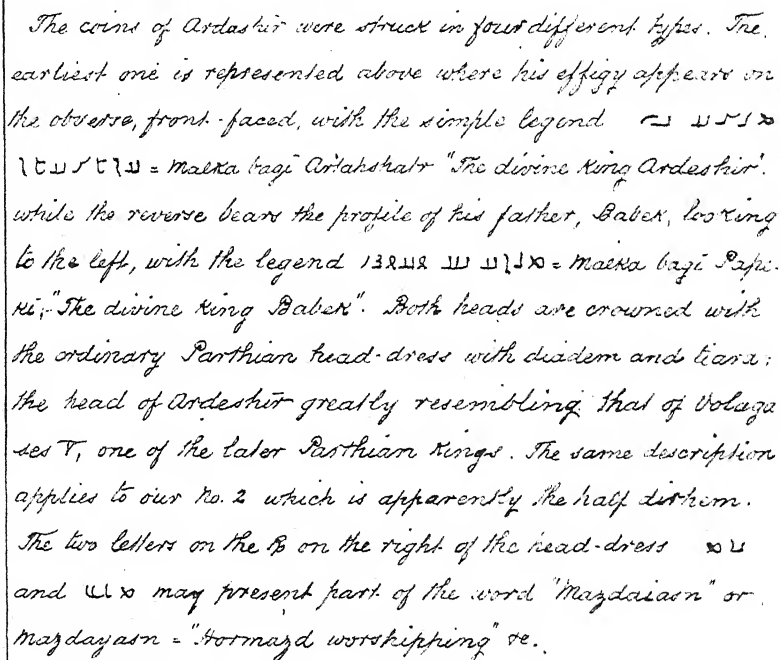 The coins of Ardashir were struck in four different types. The
earliest one is represented above where his effigy appears on
the obverse, front-faced, with the simple legend
= Malka bagi Artahshatr "The divine King Ardeshir".
while the reverse bears the profile of his father, Babek, looking
to the left, with the legend = Malka bagi Papi-
ki, "The divine King Babek". Both heads are crowned with
the ordinary Parthian head-dress with diadem and tiara;
the head of Ardeshir greatly resembling that of Volaga
ses V, one of the later Parthian Kings. The same description
applies to our No. 2 which is apparently the half dirhem.
The two letters on the on the right of the head-dress
and may present part of the word "Mazdaiasn" or
Mazdayasn = "Hormazd worshipping" &c.